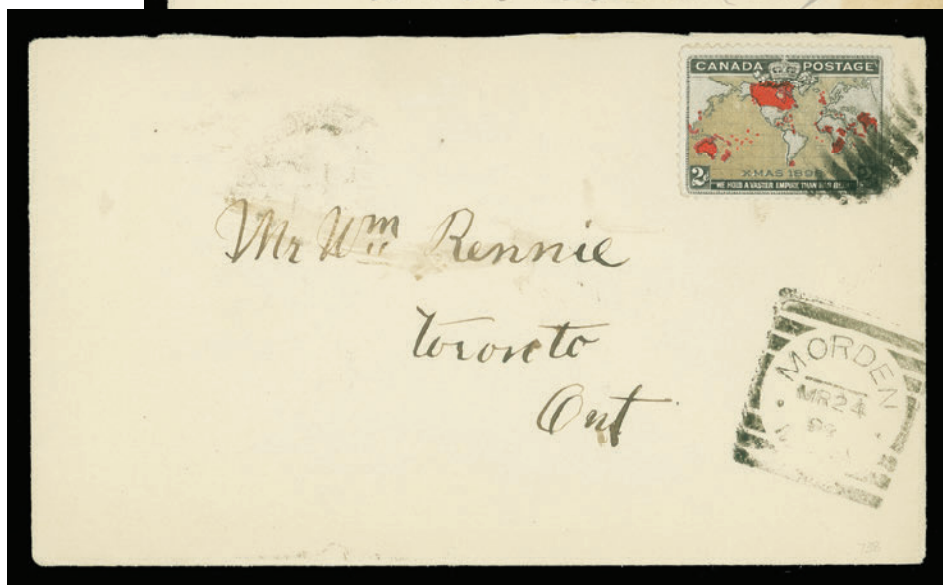 CANADA POSTAGE
XMAS 1898
2¢
WE HOLD A VASTER EMPIRE THAN HAS BEEN
Mr Wm Rennie
Toronto
Ont
MORDEN
MR 24
99
738